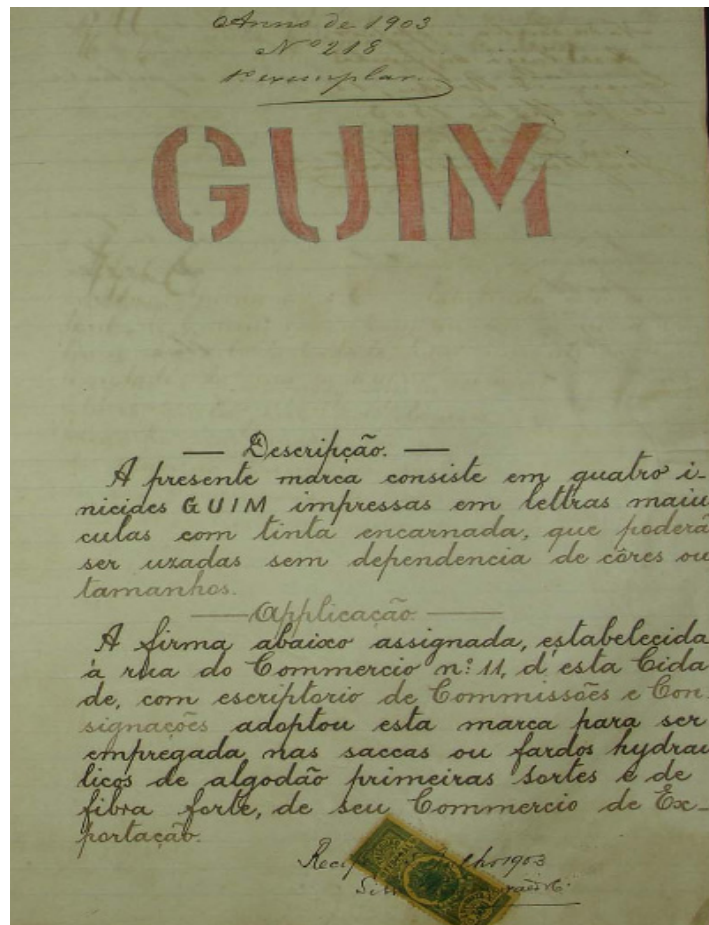 Anno de 1903
Nº 218
1º exemplar
GUIM
— Descripção. —
A presente marca consiste em quatro i-
niciaes GUIM impressas em lettras maiu
culas com tinta encarnada, que poderá
ser uzadas sem dependencia de côres ou
tamanhos.
— Applicação. —
A firma abaixo assignada, estabelecida
á rua do Commercio n.º 11, d'esta Cida
de, com escriptorio de Commissões e Con
signações adoptou esta marca para ser
empregada nas saccas ou fardos hydrau
licos de algodão primeiras sortes e de
fibra forte, de seu Commercio de Ex-
portação.
1903